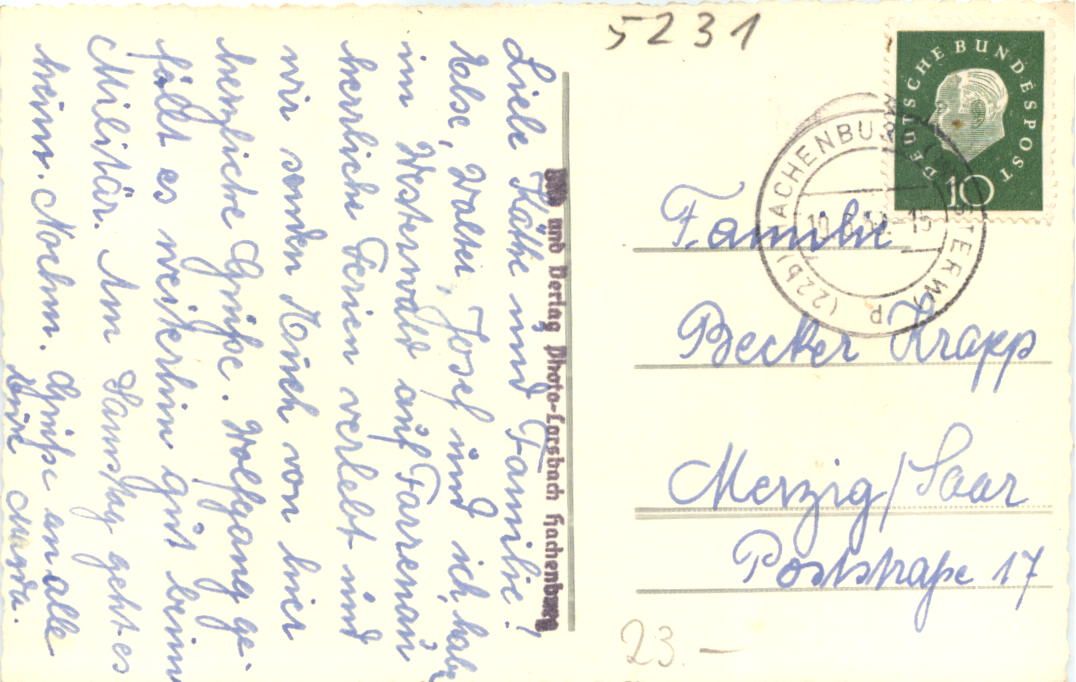 5231
DEUTSCHE BUNDESPOST
10
(22b) HACHENBURG (WESTERW)
Familie
Becker Krapp
Merzig/Saar
Poststraße 17
23.—
und Verlag Photo-Larsbach Hachenburg
Liebe Käthe und Familie!
Else, Walter, Josef und ich, habe
im Westerwald auf Farrenau
herrliche Ferien verlebt und
wir senden Euch von hier
herzliche Grüße. Wolfgang ge-
fällt es weiterhin gut beim
Militär. Am Samstag geht es
heim. Nochm. Grüße an alle